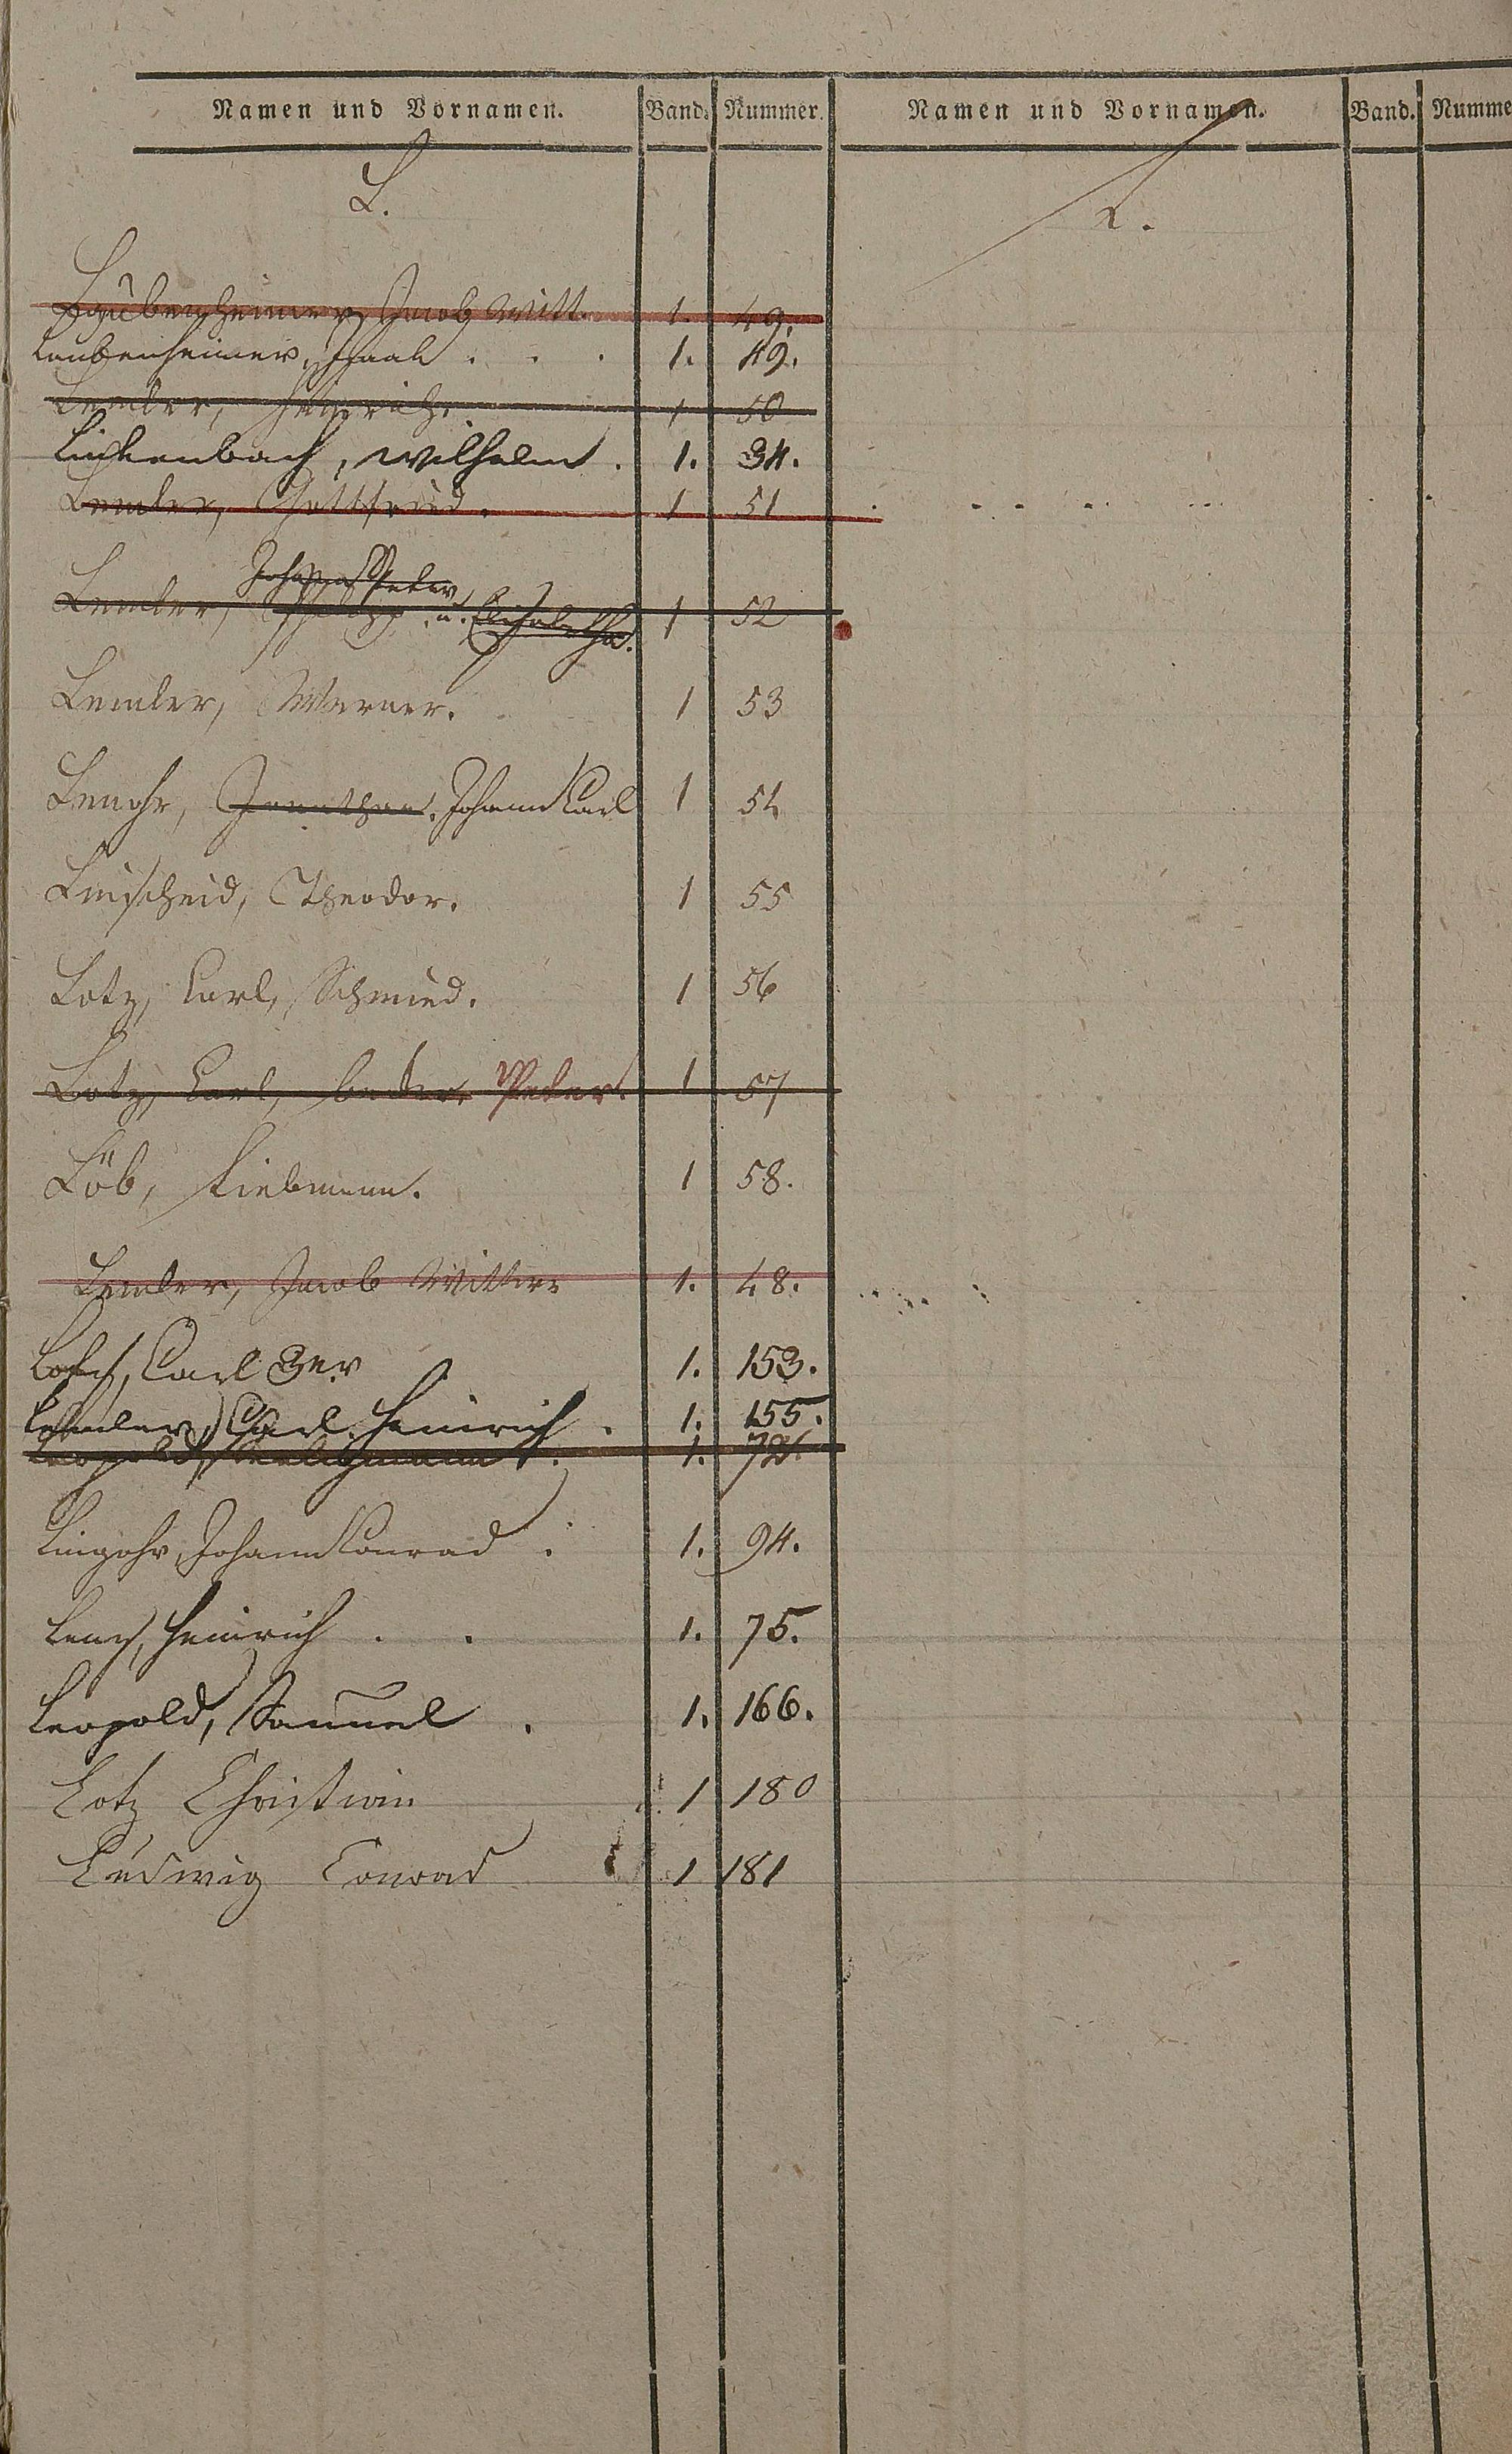 Namen und Vornamen. Band. Nummer. Namen und Vornamen. Band. Numme
L. L.
Laubenheimer, Jacob Witt. 1. 49.
Laubenheimer, Isaak . . . 1. 49.
Lemler, Heinrich. 1 50
Lickenbach, Wilhelm. 1. 34.
Lemler, Gottfried. 1 51
Johann Peter
Lemler, Philipp u. Elisabetha. 1 52
Lemler, Werner. 1 53
Lemohr, Jonathan. Johann Carl 1 54
Leuscheid, Theodor. 1 55
Lotz, Carl, Schmied. 1 56
Lotz, Carl, Peter. 1 57
Löb, Liebmann. 1 58.
Lemler, Jacob Wittwe 1. 48.
Lotz, Carl 3er 1. 153.
Lemler, Carl Heinrich . 1. 155.
Leopold, 1.
Lingohr, Johann Konrad . 1. 94.
Lenz, Heinrich . . 1. 75.
Leopold, Samuel . 1. 166.
Lotz Christian 1 180
Ludwig Conrad 1 181